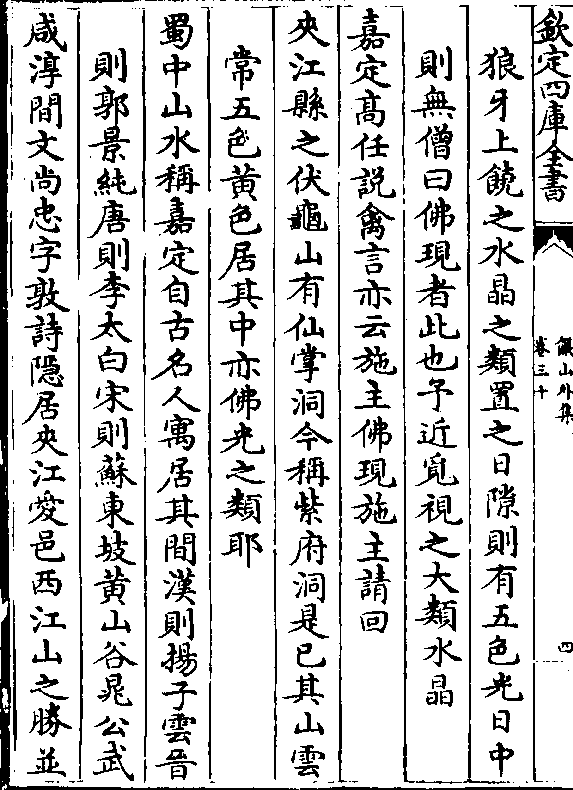 欽定四庫全書
儼山外集
卷三十
四
狼牙上饒之水晶之類置之日隙則有五色光日中
則無僧曰佛現者此也予近覓視之大類水晶
嘉定高任説禽言亦云施主佛現施主請回
夾江縣之伏龜山有仙掌洞今稱紫府洞是已其山雲
常五色黄色居其中亦佛光之類耶
蜀中山水稱嘉定自古名人寓居其間漢則揚子雲晉
則郭景純唐則李太白宋則蘇東坡黄山谷晁公武
咸淳間文尚忠字敦詩隱居夾江愛邑西江山之勝並